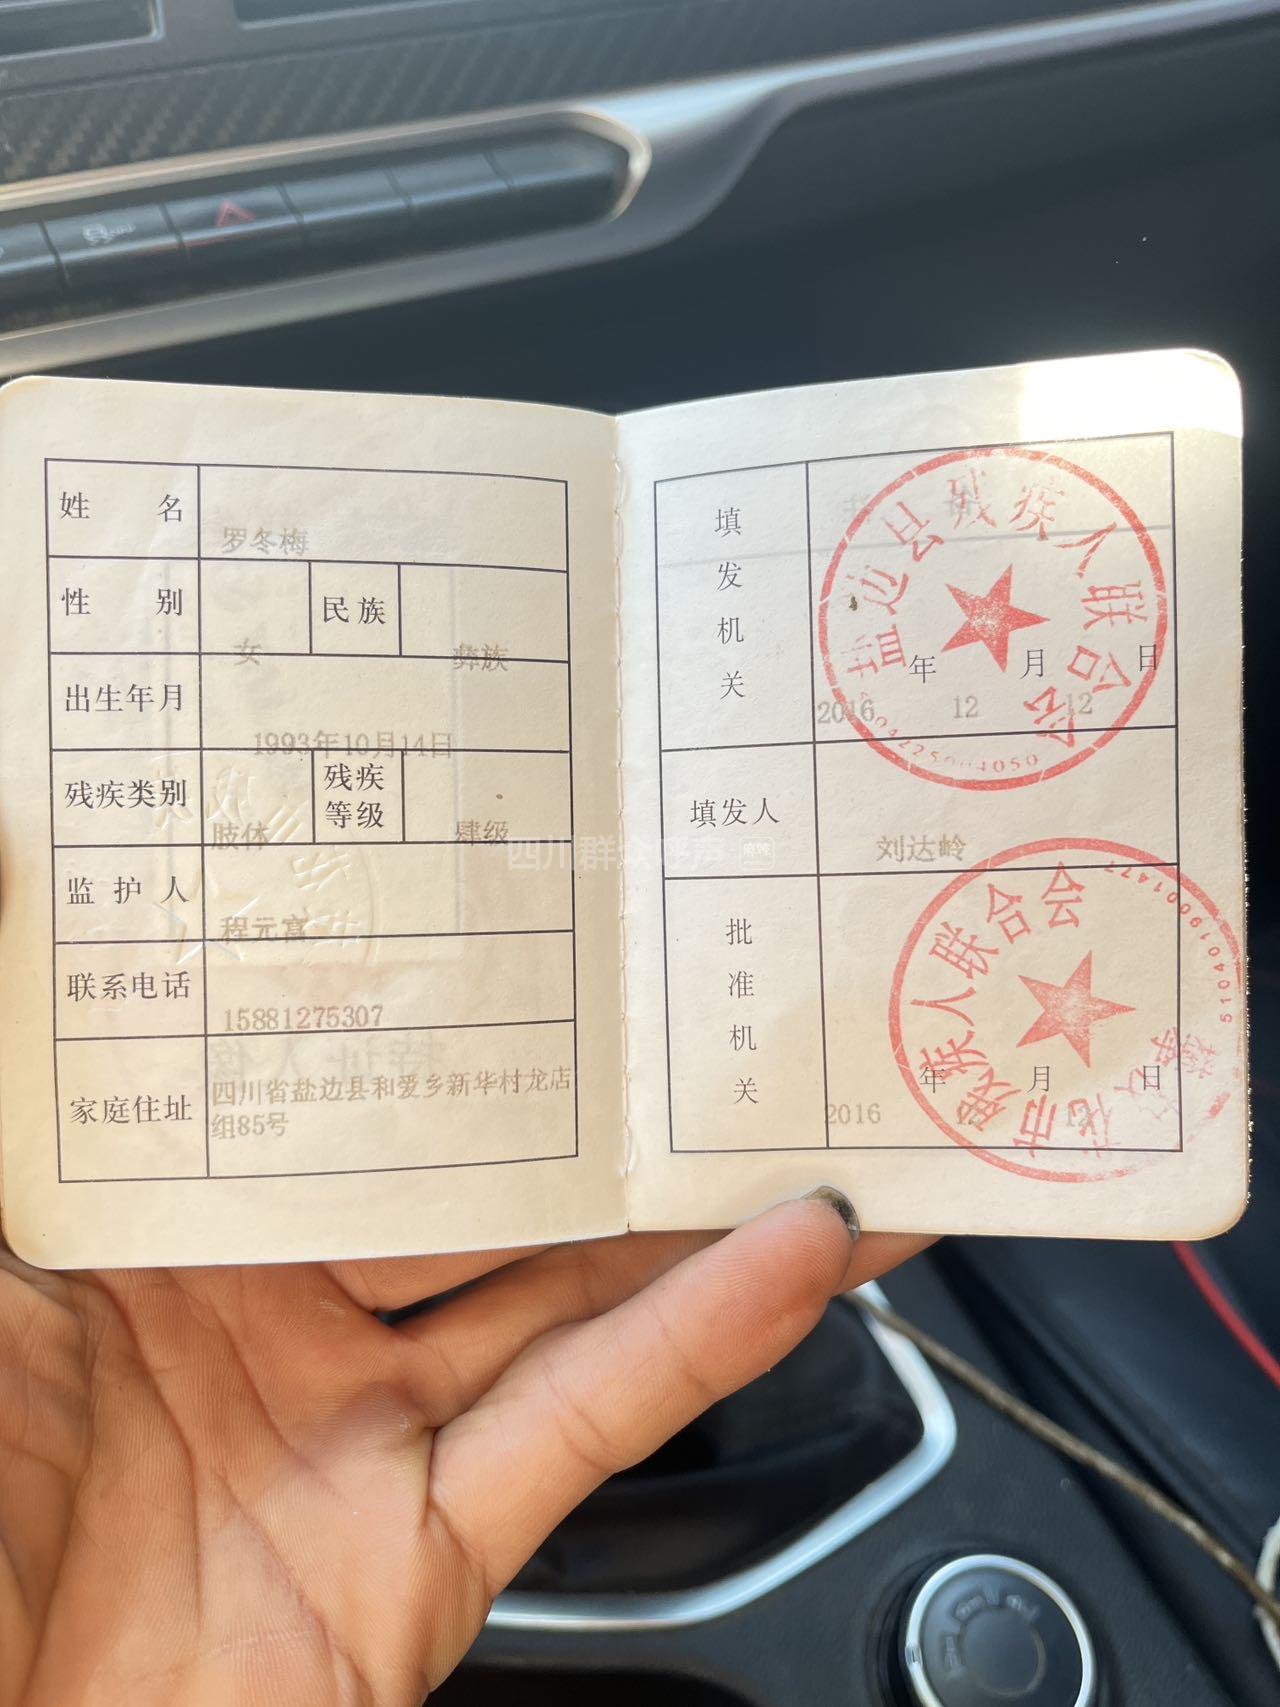 姓名
罗冬梅
性别
女
民族
彝族
出生年月
1993年10月14日
残疾类别
肢体
残疾
等级
肆级
监护人
程元富
联系电话
15881275307
家庭住址
四川省盐边县和爱乡新华村龙店
组85号
填发机关
盐边县残疾人联合会
年 月 日
2016 12 12
填发人
刘达岭
批准机关
残疾人联合会
5104019001477
年 月 日
2016 12 12
四川群众呼声
麻辣